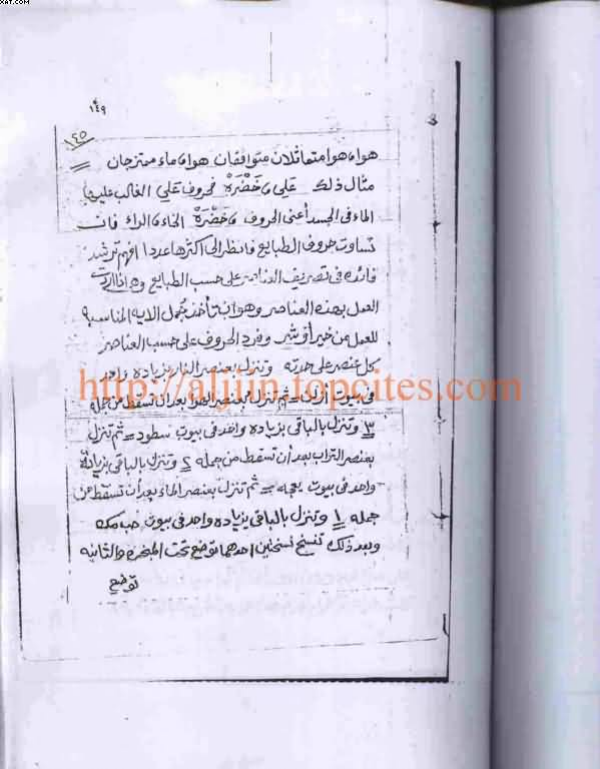 XAT.COM
١٤٩
١٤٥
هواء هوا متماثلان متوافقان هواء ماء ممتزجان
مثال ذلك على خَضْرَهْ فحروف على الغالب عليها
الماء فى الجسد أعنى الحروف خَضْرَهْ الخاء والراء فان
تساوت حروف الطبايع فانظر الى اكثرها عددا افهم ترشد
فائده فى تصريف العناصر على حسب الطبايع واذا اردت
العمل بهذه العناصر وهو ان تأخذ جُمل الايه المناسبه
للعمل من خير أو شر وفرد الحروف على حسب العناصر
كل عنصر على حدته وتنزل بعنصر النار بزياده واحد
http://aljiin.topcites.com
فى بيوت ثم تنزل بعنصر الهوا بعد ان تسقط من جمله
٣ وتنزل بالباقى بزياده واحد فى بيوت ثم تنزل
بعنصر التراب بعد أن تسقط من جمله ٤ وتنزل بالباقى بزيادة
واحد فى بيوت ثم تنزل بعنصر الماء بعد أن تسقط من
جمله ١ وتنزل بالباقى بزياده واحد فى بيوت
وبعد ذلك تنسخ نسختين احدهما توضع تحت المبخره والثانيه
توضع